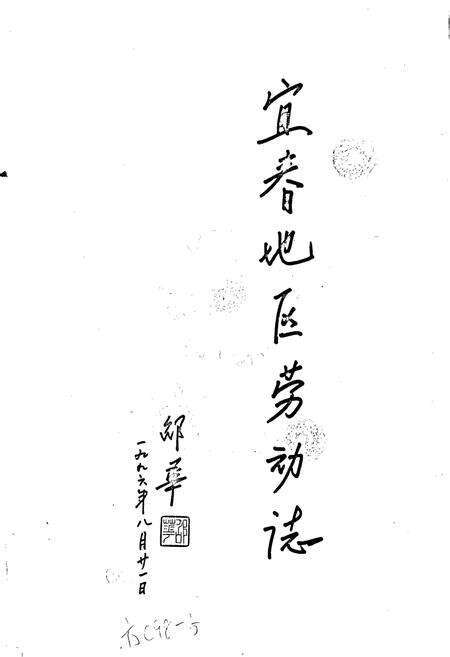 宜春地区劳动誌
邹华
一九九六年八月廿一日